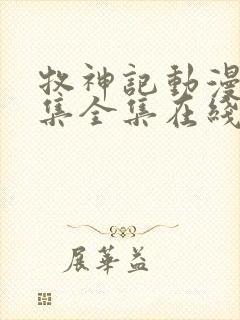 牧神記動漫
集全集在綫
展華益